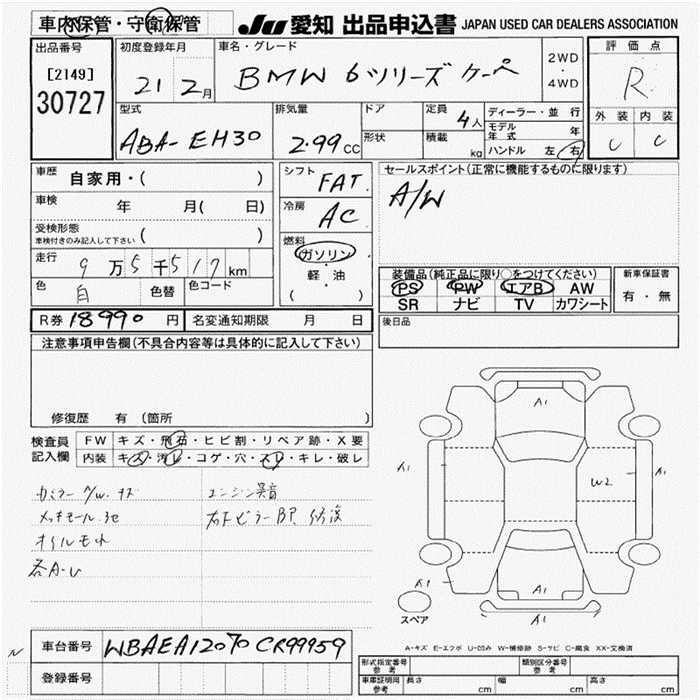 車内保管・守衛保管
JU 愛知 出品申込書 JAPAN USED CAR DEALERS ASSOCIATION
出品番号
[2149]
30727
初度登録年月
21 2月
車名・グレード
BMW 6ツリーズ クーペ
2WD
・
4WD
評価点
R
外装 内装
C
型式
ABA-EH30
排気量
2.99cc
ドア
形状
定員
4人
積載
kg
ディーラー・並行
モデル年式 年
ハンドル 左 右
車歴
自家用・( )
車検
年 月( 日)
受検形態
車検付きのみ記入して下さい ( )
走行
9万5千517km
色
白
色替
色コード
シフト
FAT
冷房
AC
燃料
ガソリン
・
軽・油
( )
セールスポイント(正常に機能するものに限ります)
A/W
装備品(純正品に限り○をつけてください)
PS PW エアB AW
SR ナビ TV カワシート
新車保証書
有・無
後日品
R券 18990円
名変通知期限 月 日
注意事項申告欄(不具合内容等は具体的に記入して下さい)
修復歴 有 (箇所 )
検査員
記入欄
FW キズ・飛石・ヒビ割・リペア跡・X要
内装 キズ・汚レ・コゲ・穴・スレ・キレ・破レ
カミラー A/W キズ
エンジン異音
メッキモール
オイルモレ
各A-U
A1
A1
W2
A1
A1
A1
A1
スペア
A-キズ E-エクボ U-凹み W-補修跡 S-サビ C-腐食 XX-交換済
車台番号
WBAEA12070CR99959
登録番号
形式指定番号
参考
類別区分番号
参考
車庫証明用
参考
長さ cm
幅 cm
高さ cm